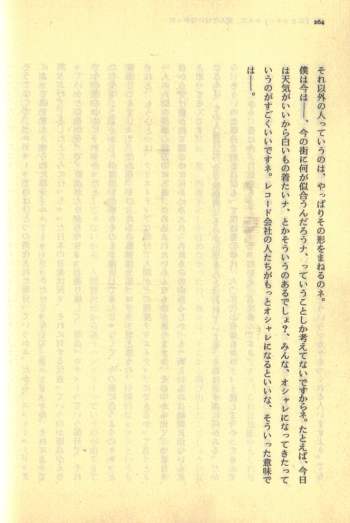 264
それ以外の人っていうのは、やっぱりその形をまねるのネ。
僕は今は――、今の街に何が似合うんだろうナ、っていうことしか考えてないですからネ。たとえば、今日
は天気がいいから白いもの着たいナ、とかそういうのあるでしょ？、みんな、オシャレになってきたって
いうのがすごくいいですネ。レコード会社の人たちがもっとオシャレになるといいな、そういった意味で
は――。